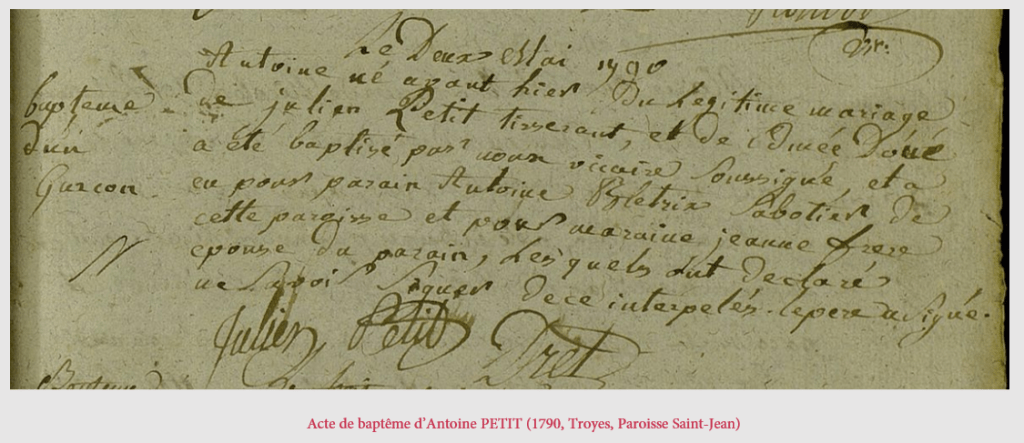 Le Deux Mai 1790
Antoine né avant hier Du Legitime mariage
de julien Petit tisserant, et de Edmée Doué
a été baptisé par nous vicaire soussigné, et a
eu pour parain Antoine sabotier de
cette paroisse et pour maraine jeanne frere
epouse du parain, Lesquels ont declaré
ne savoir signer de ce interpelés. le pere a signé.
baptême
d'un
Garcon
N
Julien Petit Dret
Acte de baptême d'Antoine PETIT (1790, Troyes, Paroisse Saint-Jean)